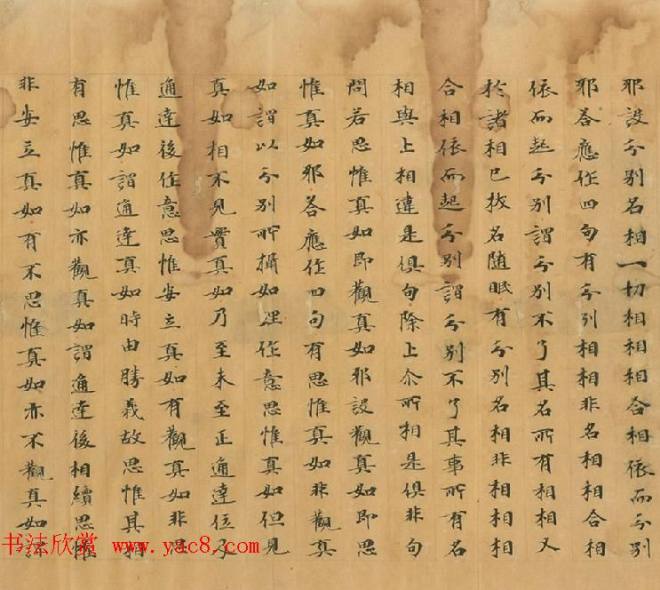 邪設分別名相一切相相相合相依而分別
邪答應作四句有分別相相非名相相合相
依而起分別謂分別不了其名所有相相又
於諸相已拔名隨眠有分別名相非相相相
合相依而起分別謂分別不了其事所有名
相與上相違是俱句除上尒所相是俱非句
問若思惟真如即觀真如邪設觀真如即思
惟真如邪答應作四句有思惟真如非觀真
如謂以分別所攝如理作意思惟真如但見
真如相不見實真如乃至未至正通達位及
通達後作意思惟安立真如有觀真如非思
惟真如謂通達真如時由勝義故思惟其相
有思惟真如亦觀真如謂通達後相續思惟
非安立真如有不思惟真如亦不觀真如謂
书法欣赏 www.yac8.com